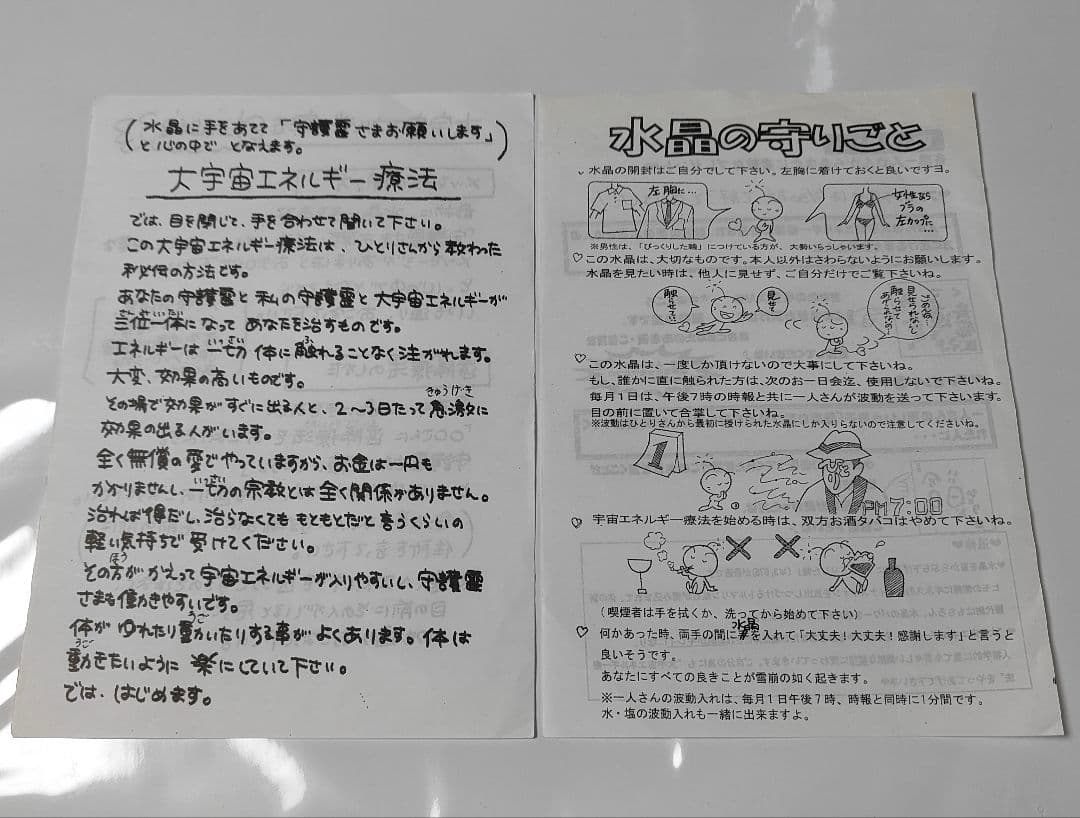 (水晶に手をあてて「守護霊さまお願いします」
と心の中で となえます。)
大宇宙エネルギー療法
では、目を閉じて、手を合わせて聞いて下さい。
この大宇宙エネルギー療法は、ひとりさんから教わった
秘伝の方法です。
あなたの守護霊と私の守護霊と大宇宙エネルギーが
三位一体になって あなたを治すものです。
エネルギーは一切 体に触れることなく注がれます。
大変、効果の高いものです。
その場で効果がすぐに出る人と、2〜3日たって急激に
効果の出る人がいます。
全く無償の愛でやっていますから、お金は一円も
かかりませんし、一切の宗教とは全く関係がありません。
治れば得だし、治らなくても もともとだと言うくらいの
軽い気持ちで 受けてください。
その方が かえって宇宙エネルギーが入りやすいし、守護霊
さまも働きやすいです。
体が ゆれたり動いたりする事が よくあります。体は
動きたいように 楽にしていて下さい。
では、はじめます。
水晶の守りごと
水晶の開封はご自分でして下さい。左胸に着けておくと良いですヨ。
左胸に…
女性なら
ブラの
左カップに…
※男性は、「びっくりした輪」につけている方が、大勢いらっしゃいます。
♡この水晶は、大切なものです。本人以外はさわらないようにお願いします。
水晶を見たい時は、他人に見せず、ご自分だけでご覧下さいね。
触らせてい
見せて
♡この水晶は、一度しか頂けないので大事にして下さいね。
もし、誰かに直に触られた方は、次のお一日会迄、使用しないで下さいね。
毎月1日は、午後7時の時報と共に一人さんが波動を送って下さいます。
目の前に置いて合掌して下さいね。
※波動はひとりさんから最初に授けられた水晶にしか入りらないので注意してくださいね。
1
PM7:00
♡宇宙エネルギー療法を始める時は、双方お酒タバコはやめて下さいね。
(喫煙者は手を拭くか、洗ってから始めて下さい)
♡何かあった時、両手の間に水晶を入れて「大丈夫!大丈夫!感謝します」と言うと
良いそうです。
あなたにすべての良きことが雪崩の如く起きます。
※一人さんの波動入れは、毎月1日午後7時、時報と同時に1分間です。
水・塩の波動入れも一緒に出来ますよ。